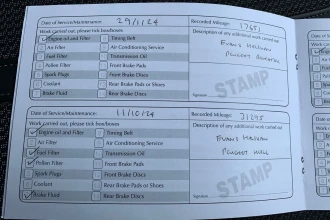 Date of Service/Maintenance: 29/11/24 Recorded Mileage: 17651
Work carried out, please tick box/boxes: Description of any additional work carried out
Engine oil and Filter Timing Belt
Air Filter Air Conditioning Service
Fuel Filter Transmission Oil
Pollen Filter Front Brake Pads
Spark Plugs Front Brake Discs
Coolant Rear Brake Pads or Shoes
Brake Fluid Rear Brake Discs
Evans Halshaw
Peugeot
STAMP
Date of Service/Maintenance: 11/10/24 Recorded Mileage:
Work carried out, please tick box/boxes: Description of any additional work carried out
Engine oil and Filter Timing Belt
Air Filter Air Conditioning Service
Fuel Filter Transmission Oil
Pollen Filter Front Brake Pads
Spark Plugs Front Brake Discs
Coolant Rear Brake Pads or Shoes
Brake Fluid Rear Brake Discs
Evans Halshaw
Peugeot Hull
STAMP